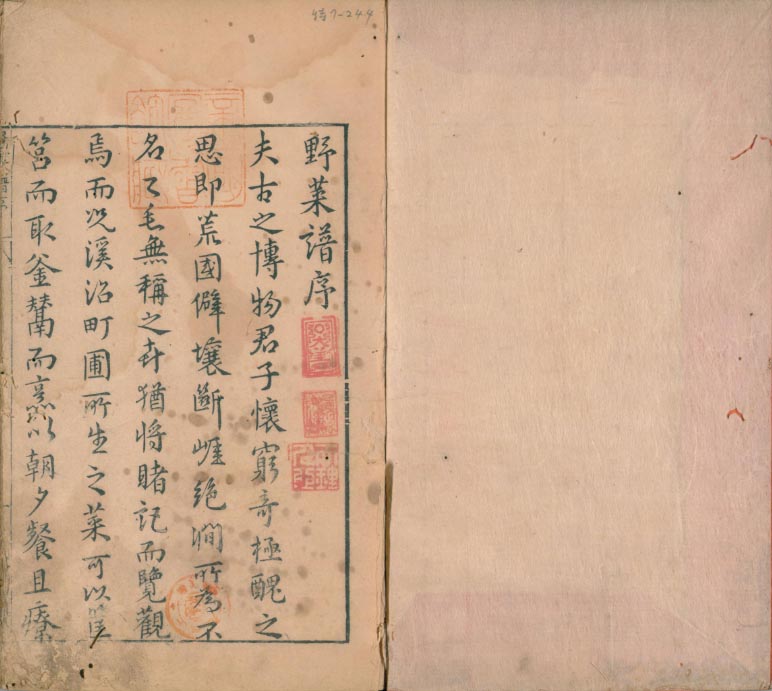 特7-244
野菜譜序
夫古之博物君子懷窮奇極醜之
思即荒國僻壤斷崕絶澗所為不
名之毛無稱之卉猶將睹記而覽觀
焉而况溪沼町圃所生之菜可以
筥而取釜鬵而烹以朝夕餐且療